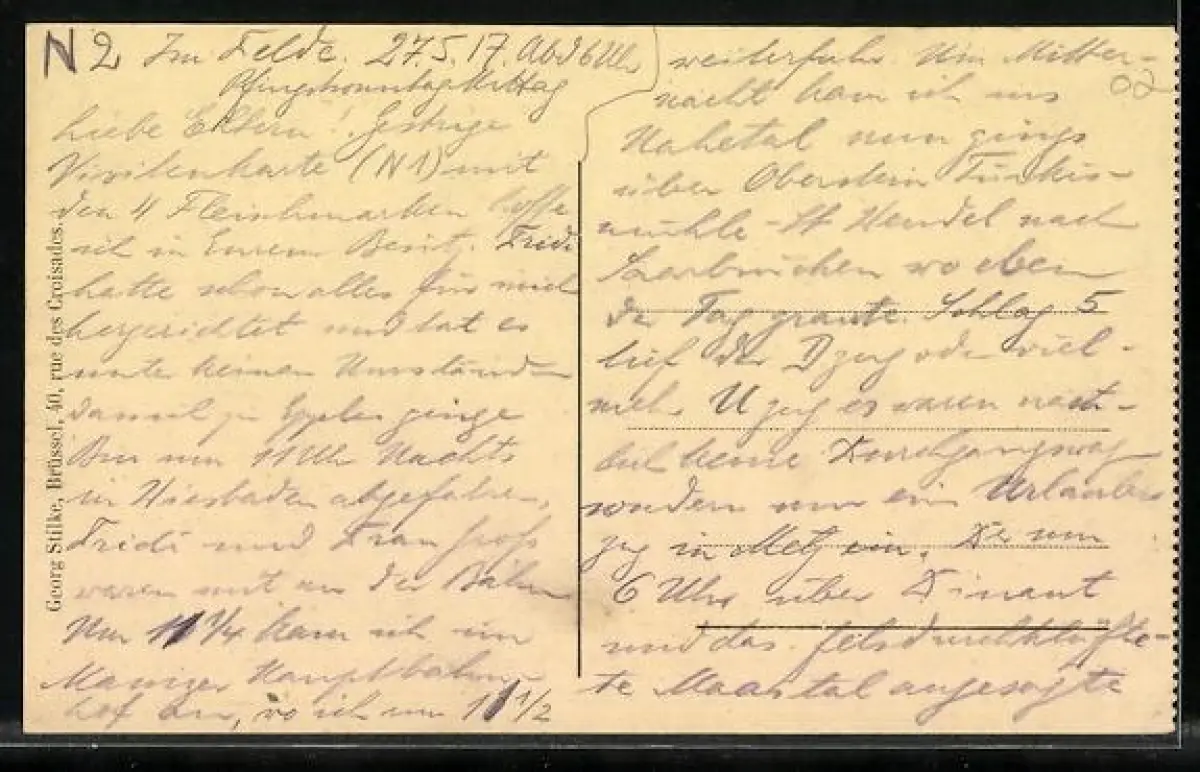 N 2 Im Felde. 27.5.17. Abd 6 Uhr
Pfingstsonntag
Liebe Eltern! Gestrige
Visitenkarte (N 1) mit
den 4 Fleischmarken hoffe
ich in Eurem Besitz. Fridi
hatte schon alles für mich
hergerichtet und tat es
unter keinen Umständen
ginge
Bin um 11 Uhr Nachts
in Wiesbaden abgefahren,
Fridi und Frau Groß
waren mit an der Bahn
Um 11 1/4 kam ich im
Mainzer Hauptbahn-
hof an, wo ich um 11 1/2
weiterfuhr. Um Mitter-
nacht kam ich ins
Nahetal nun gings
über Oberstein Türkis-
mühle - St Wendel nach
Saarbrücken wo eben
der Tag graute. Schlag 5
lief der D zug oder viel-
mehr U zug es waren
keine Durchgangswag
sondern nur ein Urlauber
zug in Metz ein. Der um
6 Uhr über Dinant
und das felsdurchklüfte-
te Maastal angesagte
Georg Stilke, Brüssel, 40, rue des Croisades.